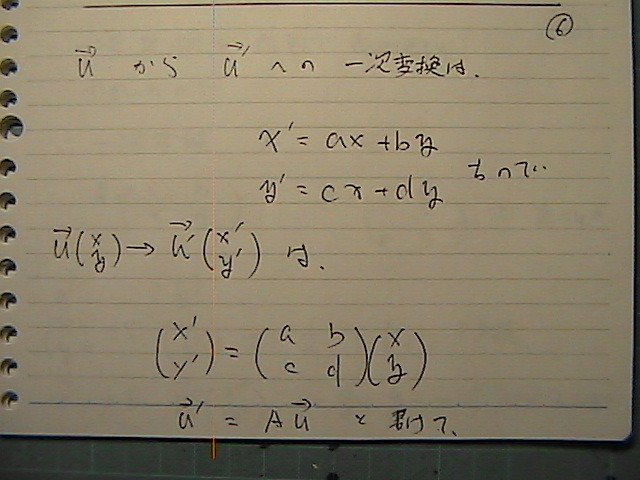 ⑥
u⃗ から u⃗' への 一次変換は、
x' = ax + by
y' = cx + dy なので
u⃗(x y) → u⃗'(x' y') は、
(x' y') = (a b c d)(x y)
u⃗' = Au⃗ と 書けて、